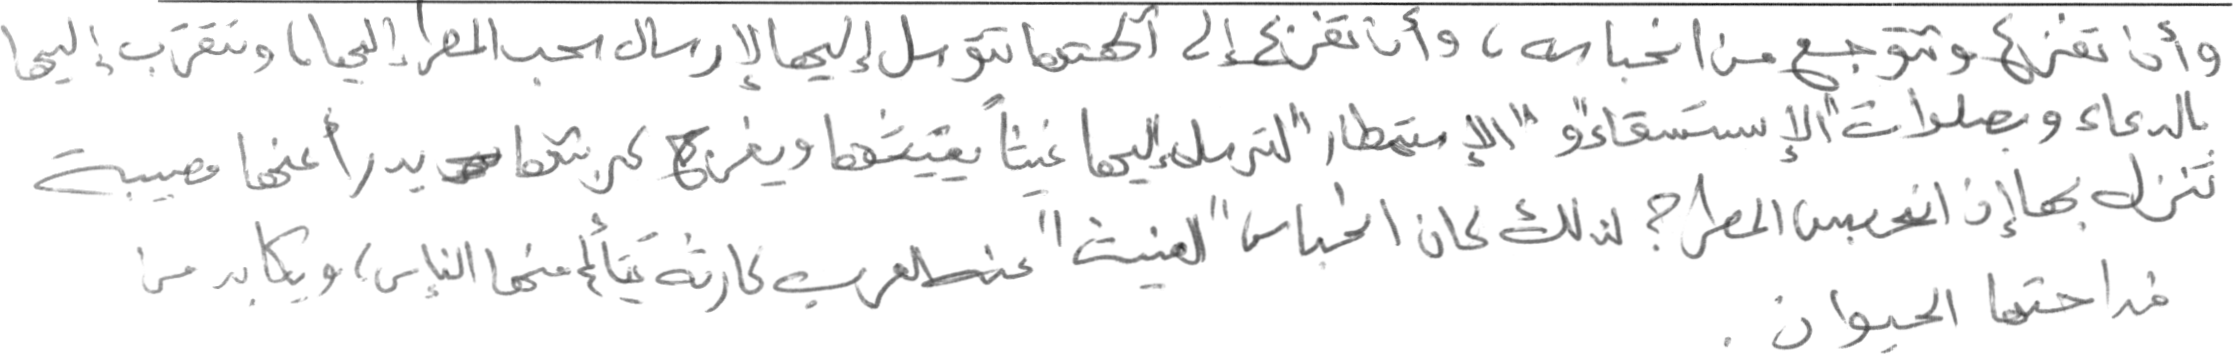 وأن تفزع وتتوجع من انحباسه، وأن تفزع إلى آلهتها تتوسل إليها لإرسال سحب المطر إليها، وتتقرّب إليها
بالدعاء وبصلوات "الإستسقاء" و "الإستمطار" لترسل إليها غيثاً يغيثها ويفرج كربتها يدرأ عنها مصيبة
تنزل بها إن انحبس المطر؟ لذلك كان انحباس "الغيث" عند العرب كارثة يتألم منها الناس، ويكابد من
فداحتها الحيوان.